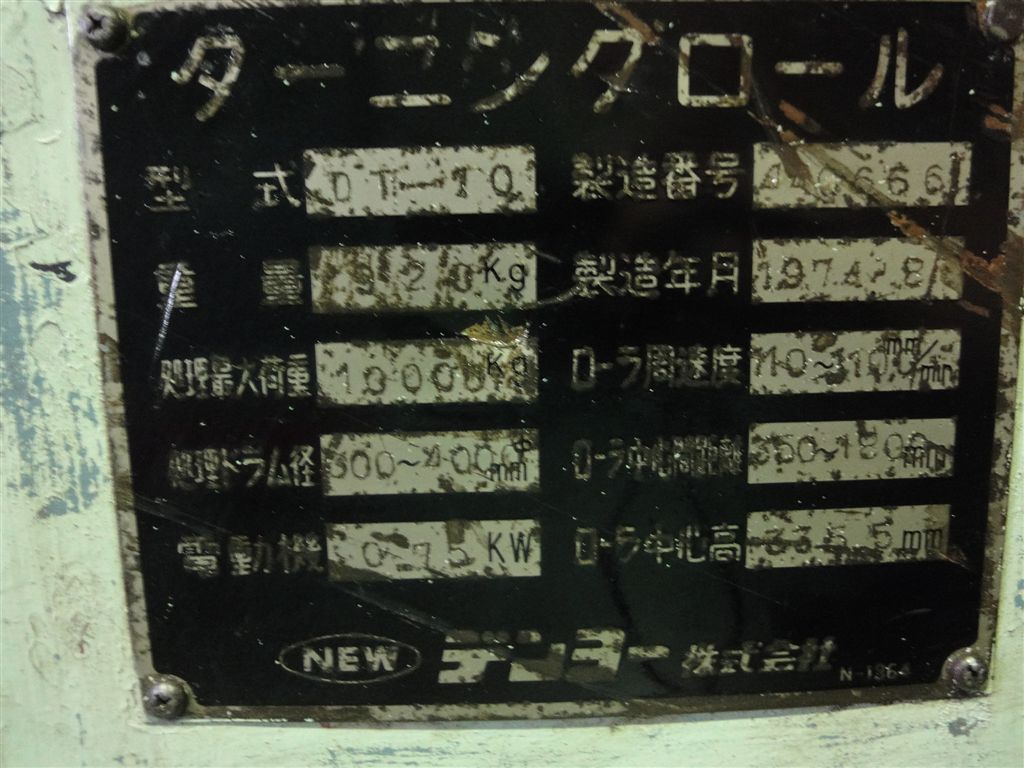 ターニングロール
型式 DT-10 製造番号
重量 Kg 製造年月 1974.8
処理最大荷重 10000Kg ローラ周速度 110~1100mm/min
処理ドラム径 300~4000φmm ローラ中心間距離 350~1500mm
電動機 0.75KW ローラ中心高 335.5mm
NEW デンヨー株式会社 N-1364